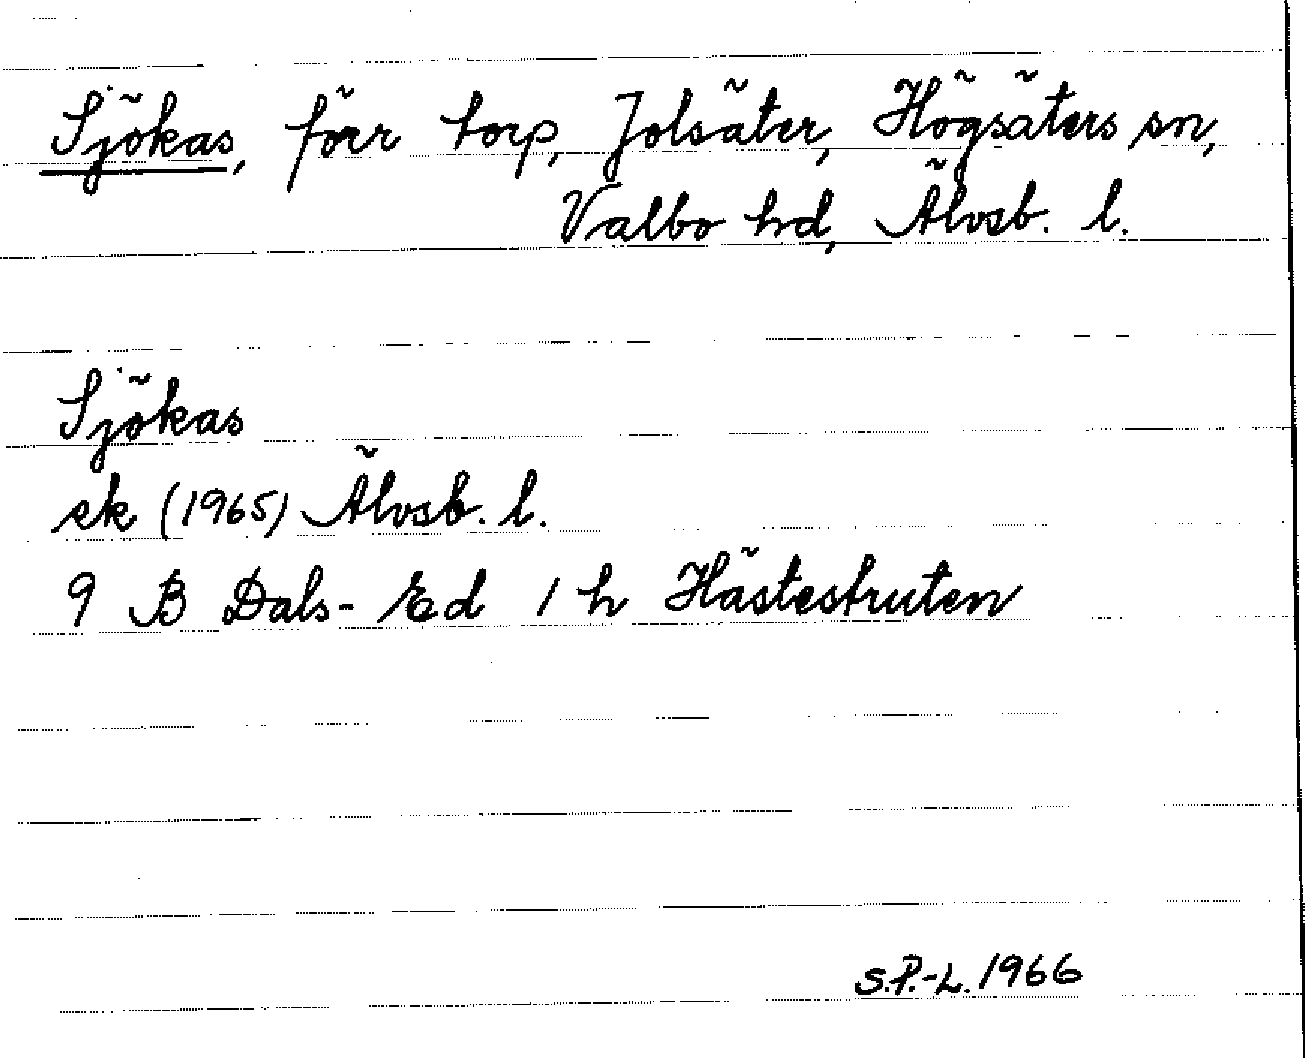 Sjökas, förr torp, Jolsäter, Högsäters sn,
Valbo hd, Älvsb. l.
Sjökas
ek (1965) Älvsb. l.
9 B Dals-Ed 1 h Hästestruten
S.P.-L. 1966